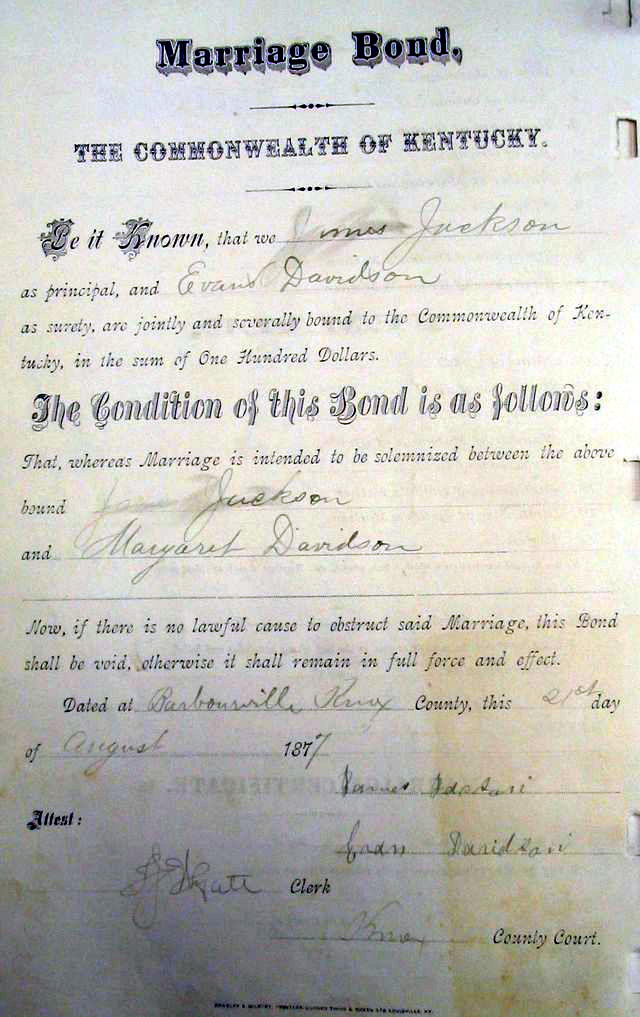 Marriage Bond,
THE COMMONWEALTH OF KENTUCKY.
Be it Known, that we James Jackson
as principal, and Evans Davidson
as surety, are jointly and severally bound to the Commonwealth of Ken-
tucky, in the sum of One Hundred Dollars.
The Condition of this Bond is as follows:
That, whereas Marriage is intended to be solemnized between the above
bound Jackson
and Margaret Davidson
Now, if there is no lawful cause to obstruct said Marriage, this Bond
shall be void, otherwise it shall remain in full force and effect.
Dated at Barbourville Knox County, this 21st day
of August 1877
James
Attest:
Davidson
Clerk
Knox County Court.